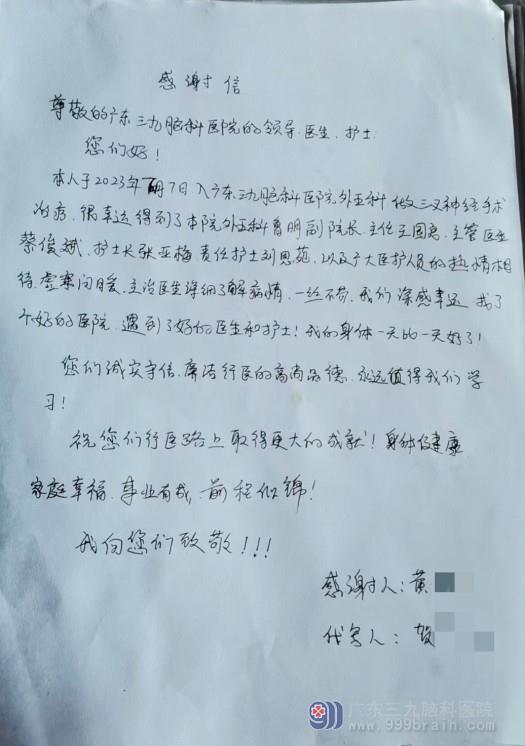 感谢信
尊敬的广东三九脑科医院的领导、医生、护士
您们好！
本人于2023年 月7日入广东三九脑科医院外五科做三叉神经手术
治疗，很幸运得到了本院外五科鲁明副院长、主任王国良、主管医生
蔡俊斌、护士长张亚梅责任护士刘思苑，以及广大医护人员的热情相
待、虚寒问暖，主治医生详细了解病情，一丝不苟，我们深感幸运找了
个好的医院，遇到了好的医生和护士！我的身体一天比一天好了！
您们诚实守信、廉洁行医的高尚品德，永远值得我们学
习！
祝您们行医路上取得更大的成就！身体健康
家庭幸福、事业有成，前程似锦！
我向您们致敬！！！
感谢人：黄
代写人：
广东三九脑科医院
www.999brain.com